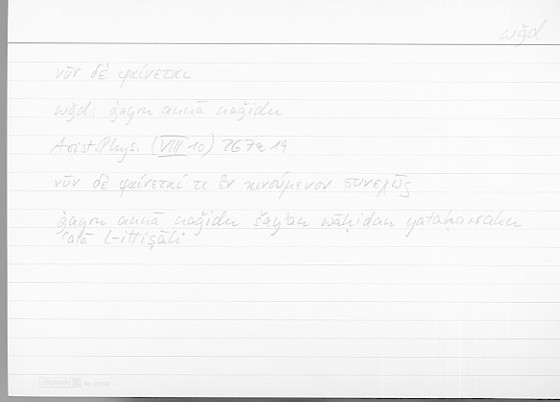 wǧd
νῦν δὲ φαίνεται
wǧd: ġayra annā naǧidu
Arist. Phys. (VIII 10) 267a 19
νῦν δὲ φαίνεταί τι ἓν κινούμενον συνεχῶς
ġayra annā naǧidu šayʾan wāḥidan yataḥarraku
ʿalā l-ittiṣāli